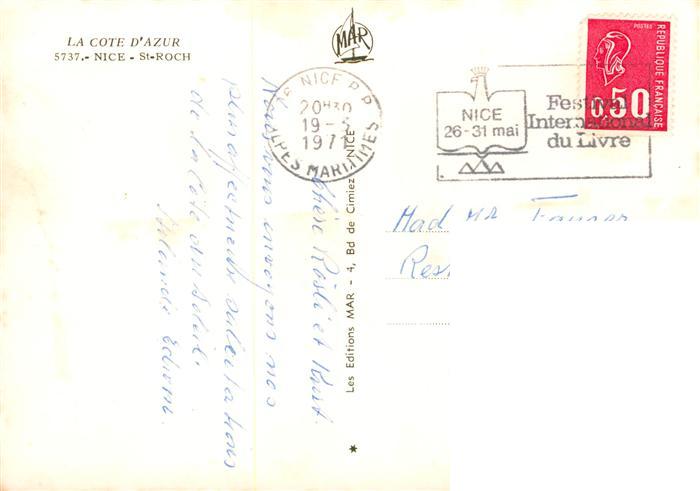 LA COTE D'AZUR
5737.- NICE - St-ROCH
MAR
NICE R.P.
20H30
19-
197
ALPES MARITIMES
NICE
26-31 mai
Festival
International
du Livre
POSTES
REPUBLIQUE FRANÇAISE
0,50
Les Editions MAR - 4, Bd de Cimiez NICE
Chère Rösli et Kurt.
Nous vous envoyons nos
plus affectueuses salutations
de la Côte du Soleil.
Mad Mr